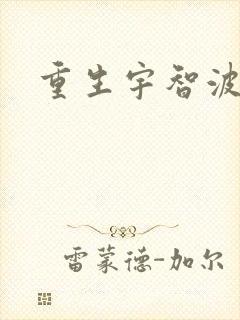 重生宇智波
雷蒙德-加尔